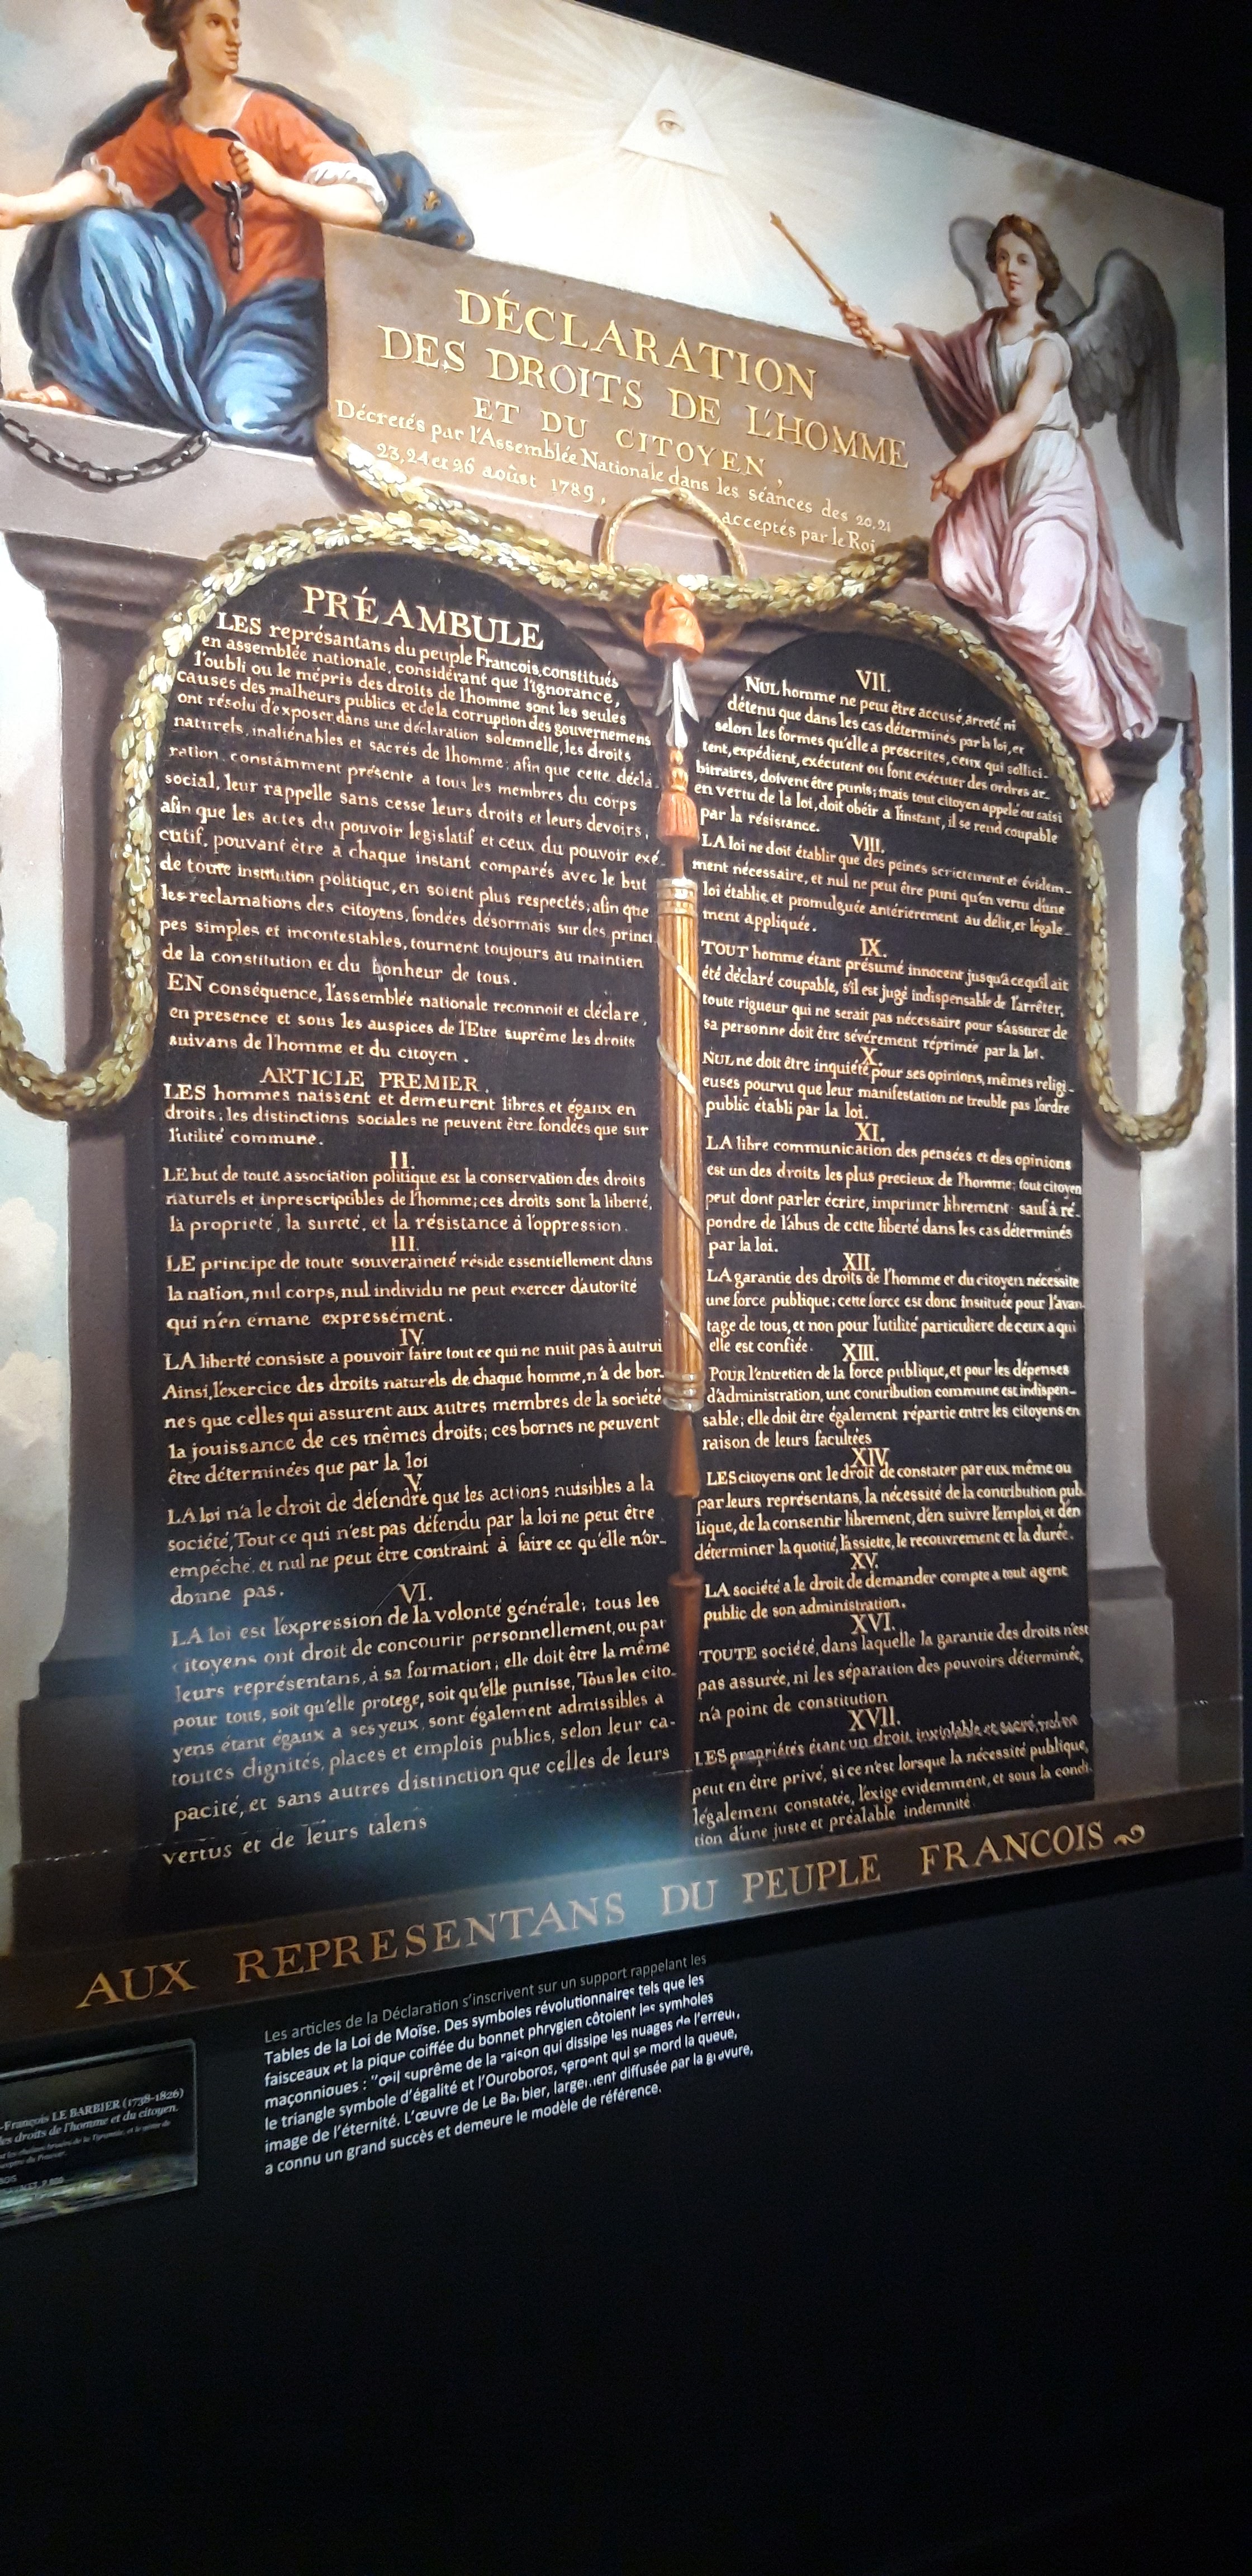 DÉCLARATION
DES DROITS DE L'HOMME
ET DU CITOYEN,
Décretés par l'Assemblée Nationale dans les séances des 20.21
23,24 et 26 août 1789,
acceptés par le Roi
PRÉAMBULE
LES représantans du peuple Francois, constitués
en assemblée nationale, considérant que l'ignorance,
l'oubli ou le mépris des droits de l'homme sont les seules
causes des malheurs publics et de la corruption des gouvernemens
ont résolu d'exposer, dans une déclaration solemnelle, les droits
naturels, inaliénables et sacrés de lhomme; afin que cette décla-
ration, constamment présente a tous les membres du corps
social, leur rappelle sans cesse leurs droits et leurs devoirs,
afin que les actes du pouvoir legislatif et ceux du pouvoir exé-
cutif, pouvant être a chaque instant comparés avec le but
de toute institution politique, en soient plus respectés; afin que
les reclamations des citoyens, fondées désormais sur des princi
pes simples et incontestables, tournent toujours au maintien
de la constitution et du bonheur de tous.
EN conséquence, l'assemblée nationale reconnoit et déclare,
en presence et sous les auspices de l'Etre suprême les droits
suivans de l'homme et du citoyen.
ARTICLE PREMIER.
LES hommes naissent et demeurent libres et égaux en
droits. les distinctions sociales ne peuvent être fondées que sur
l'utilité commune.
II.
LE but de toute association politique est la conservation des droits
naturels et inprescriptibles de l'homme; ces droits sont la liberté,
la proprieté, la sureté, et la résistance à l'oppression.
III.
LE principe de toute souveraineté réside essentiellement dans
la nation, nul corps, nul individu ne peut exercer d'autorité
qui n'en émane expressément.
IV.
LA liberté consiste a pouvoir faire tout ce qui ne nuit pas à autrui
Ainsi, l'exercice des droits naturels de chaque homme, n'a de bor-
nes que celles qui assurent aux autres membres de la société
la jouissance de ces mêmes droits; ces bornes ne peuvent
être déterminées que par la loi
V.
LA loi n'a le droit de défendre que les actions nuisibles a la
société, Tout ce qui n'est pas défendu par la loi ne peut être
empêché, et nul ne peut être contraint à faire ce qu'elle n'or-
donne pas.
VI.
LA loi est l'expression de la volonté générale; tous les
citoyens ont droit de concourir personnellement, ou par
leurs représentans, à sa formation; elle doit être la même
pour tous, soit qu'elle protege, soit qu'elle punisse, Tous les cito-
yens étant égaux a ses yeux, sont également admissibles a
toutes dignités, places et emplois publics, selon leur ca-
pacité, et sans autres distinction que celles de leurs
vertus et de leurs talens
VII.
NUL homme ne peut être accusé, arreté ni
détenu que dans les cas déterminés par la loi, et
selon les formes qu'elle a prescrites, ceux qui sollici-
tent, expédient, exécutent ou font exécuter des ordres ar-
bitraires, doivent être punis; mais tout citoyen appelé ou saisi
en vertu de la loi, doit obéir a l'instant, il se rend coupable
par la résistance.
VIII.
LA loi ne doit établir que des peines strictement et évidem-
ment nécessaire, et nul ne peut être puni qu'en vertu d'une
loi établie, et promulguée antérierement au délit, et légale-
ment appliquée.
IX.
TOUT homme étant présumé innocent jusqu'a ce qu'il ait
été déclaré coupable, s'il est jugé indispensable de l'arrêter,
toute rigueur qui ne serait pas nécessaire pour s'assurer de
sa personne doit être sévérement réprimée par la loi.
X.
NUL ne doit être inquiété pour ses opinions, mêmes religi-
euses pourvu que leur manifestation ne trouble pas l'ordre
public établi par la loi.
XI.
LA libre communication des pensées et des opinions
est un des droits les plus precieux de l'homme; tout citoyen
peut dont parler écrire, imprimer librement sauf à ré-
pondre de l'abus de cette liberté dans les cas déterminés
par la loi.
XII.
LA garantie des droits de l'homme et du citoyen nécessite
une force publique; cette force est donc instituée pour l'avan-
tage de tous, et non pour l'utilité particuliere de ceux a qui
elle est confiée.
XIII.
POUR l'entretien de la force publique, et pour les dépenses
d'administration, une contribution commune est indispen-
sable; elle doit être également répartie entre les citoyens en
raison de leurs facultées
XIV.
LES citoyens ont le droit de constater par eux même ou
par leurs représentans, la nécessité de la contribution pub-
lique, de la consentir librement, d'en suivre l'emploi, et d'en
déterminer la quotité, l'assiette, le recouvrement et la durée.
XV.
LA société a le droit de demander compte a tout agent
public de son administration.
XVI.
TOUTE société, dans laquelle la garantie des droits n'est
pas assurée, ni les séparation des pouvoirs déterminée,
n'a point de constitution
XVII.
LES propriétés étant un droit inviolable et sacré, nul ne
peut en être privé, si ce n'est lorsque la nécessité publique,
légalement constatée, l'exige evidemment, et sous la condi-
tion d'une juste et préalable indemnité
AUX REPRESENTANS DU PEUPLE FRANCOIS
Les articles de la Déclaration s'inscrivent sur un support rappelant les
Tables de la Loi de Moïse. Des symboles révolutionnaires tels que les
faisceaux et la pique coiffée du bonnet phrygien côtoient les symboles
maçonniques : "œil suprême de la raison qui dissipe les nuages de l'erreur,
le triangle symbole d'égalité et l'Ouroboros, serpent qui se mord la queue,
image de l'éternité. L'œuvre de Le Barbier, largement diffusée par la gravure,
a connu un grand succès et demeure le modèle de référence.
-François LE BARBIER (1738-1826)
des droits de l'homme et du citoyen.